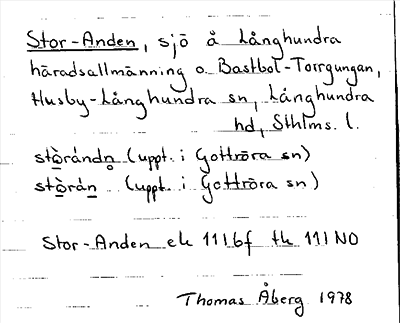 Stor-Anden, sjö å Långhundra
häradsallmänning o. Bastbol-Torrgungan,
Husby-Långhundra sn, Långhundra
hd, Sthlms. l.
stòrándn̥ (uppt. i Gottröra sn)
stòrán (uppt. i Gottröra sn)
Stor-Anden ek 111 6f tk 111 NO
Thomas Åberg 1978